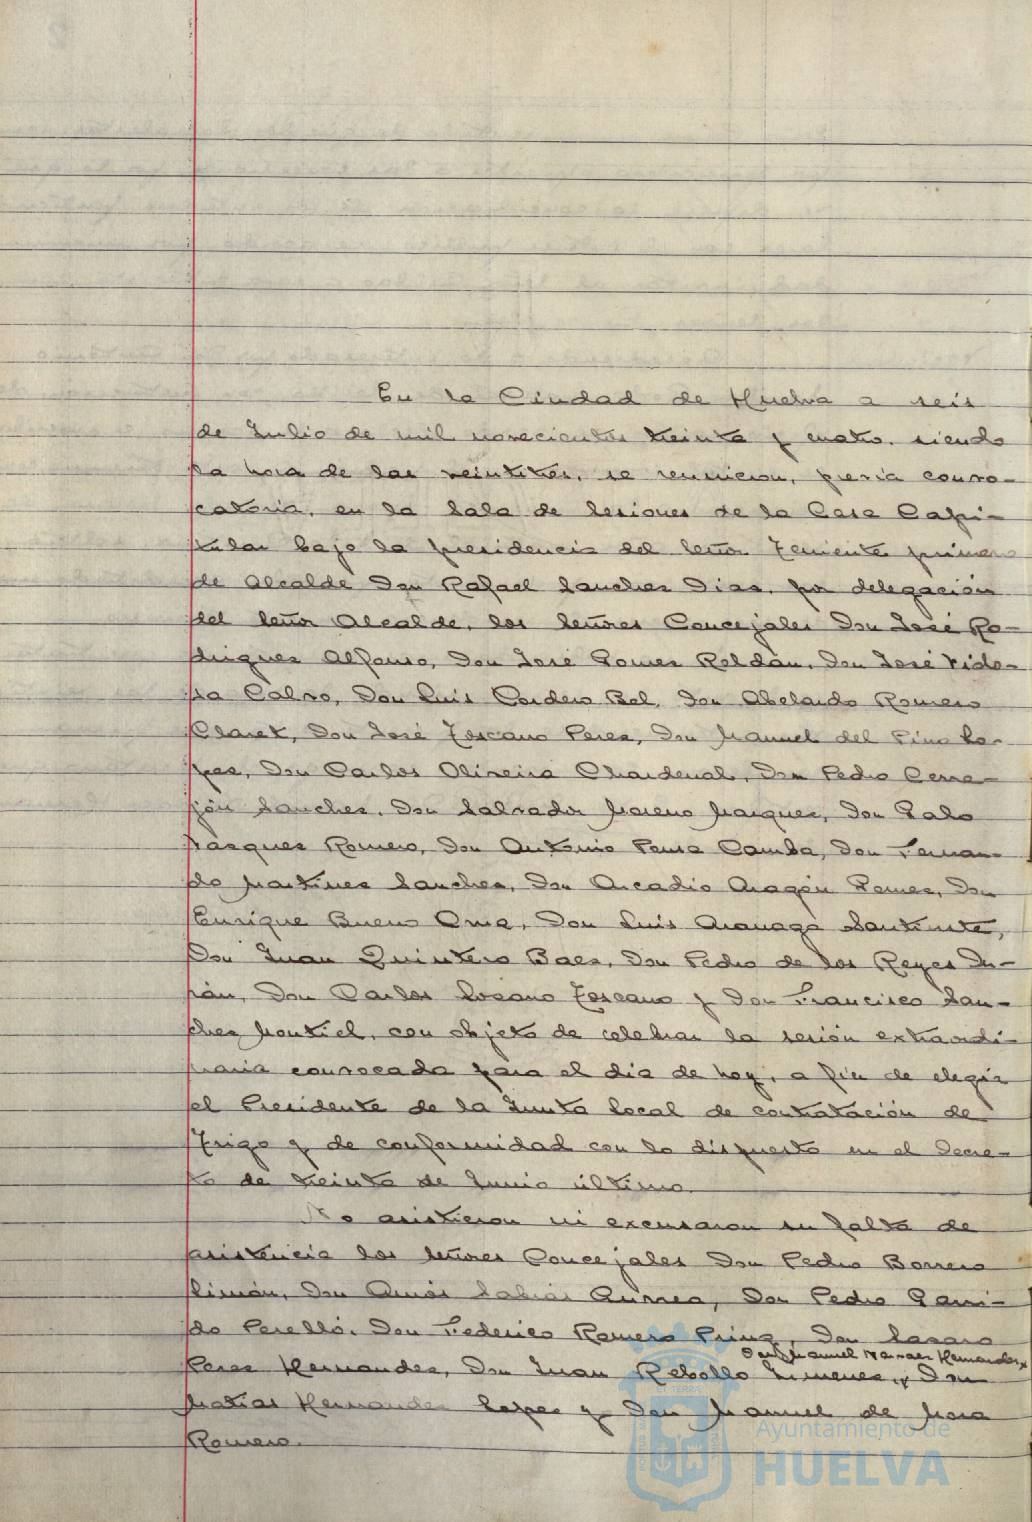 En la Ciudad de Huelva a seis
de Julio de mil novecientos treinta y cuatro, siendo
la hora de las veintitrés, se reunieron, previa convo-
catoria, en la Sala de Sesiones de la Casa Capi-
tular bajo la presidencia del Señor Teniente primero
de Alcalde Don Rafael Sanchez Diaz, por delegación
del Señor Alcalde, los Señores Concejales Don José Ro-
driguez Alfonso, Don José Gomez Roldán, Don José Vide-
ra Calvo, Don Luis Cordero Bel, Don Abelardo Romero
Claret, Don José Toscano Perez, Don Manuel del Pino Lo-
pez, Don Carlos Oliveira Chardenal, Don Pedro Cerre-
jón Sanchez, Don Salvador Moreno Marquez, Don Pablo
Vasquez Romero, Don Antonio Pousa Camba, Don Fernan-
do Martinez Sanchez, Don Arcadio Aragón Gomez, Don
Enrique Bueno Cruz, Don Luis
Don Juan Quintero Baez, Don Pedro de los Reyes Du-
rán, Don Carlos Lozano Toscano y Don Francisco San-
chez Montiel, con objeto de celebrar la sesión extraordi-
naria convocada para el día de hoy, a fin de elegir
el Presidente de la Junta local de contratación de
Trigo y de conformidad con lo dispuesto en el Decre-
to de treinta de Junio último.
No asistieron ni excusaron su falta de
asistencia los Señores Concejales Don Pedro Borrero
Limón, Don Amós Sabrás Gurrea, Don Pedro Garri-
do Perelló, Don Federico Romero Prieto, Don Lazaro
Don Manuel Narvaez Hernandez,
Perez Hernandez, Don Juan Rebollo Jimenez, y Don
Matias Hernandez Lopez y Don Manuel de Mora
Romero.
Ayuntamiento de
HUELVA